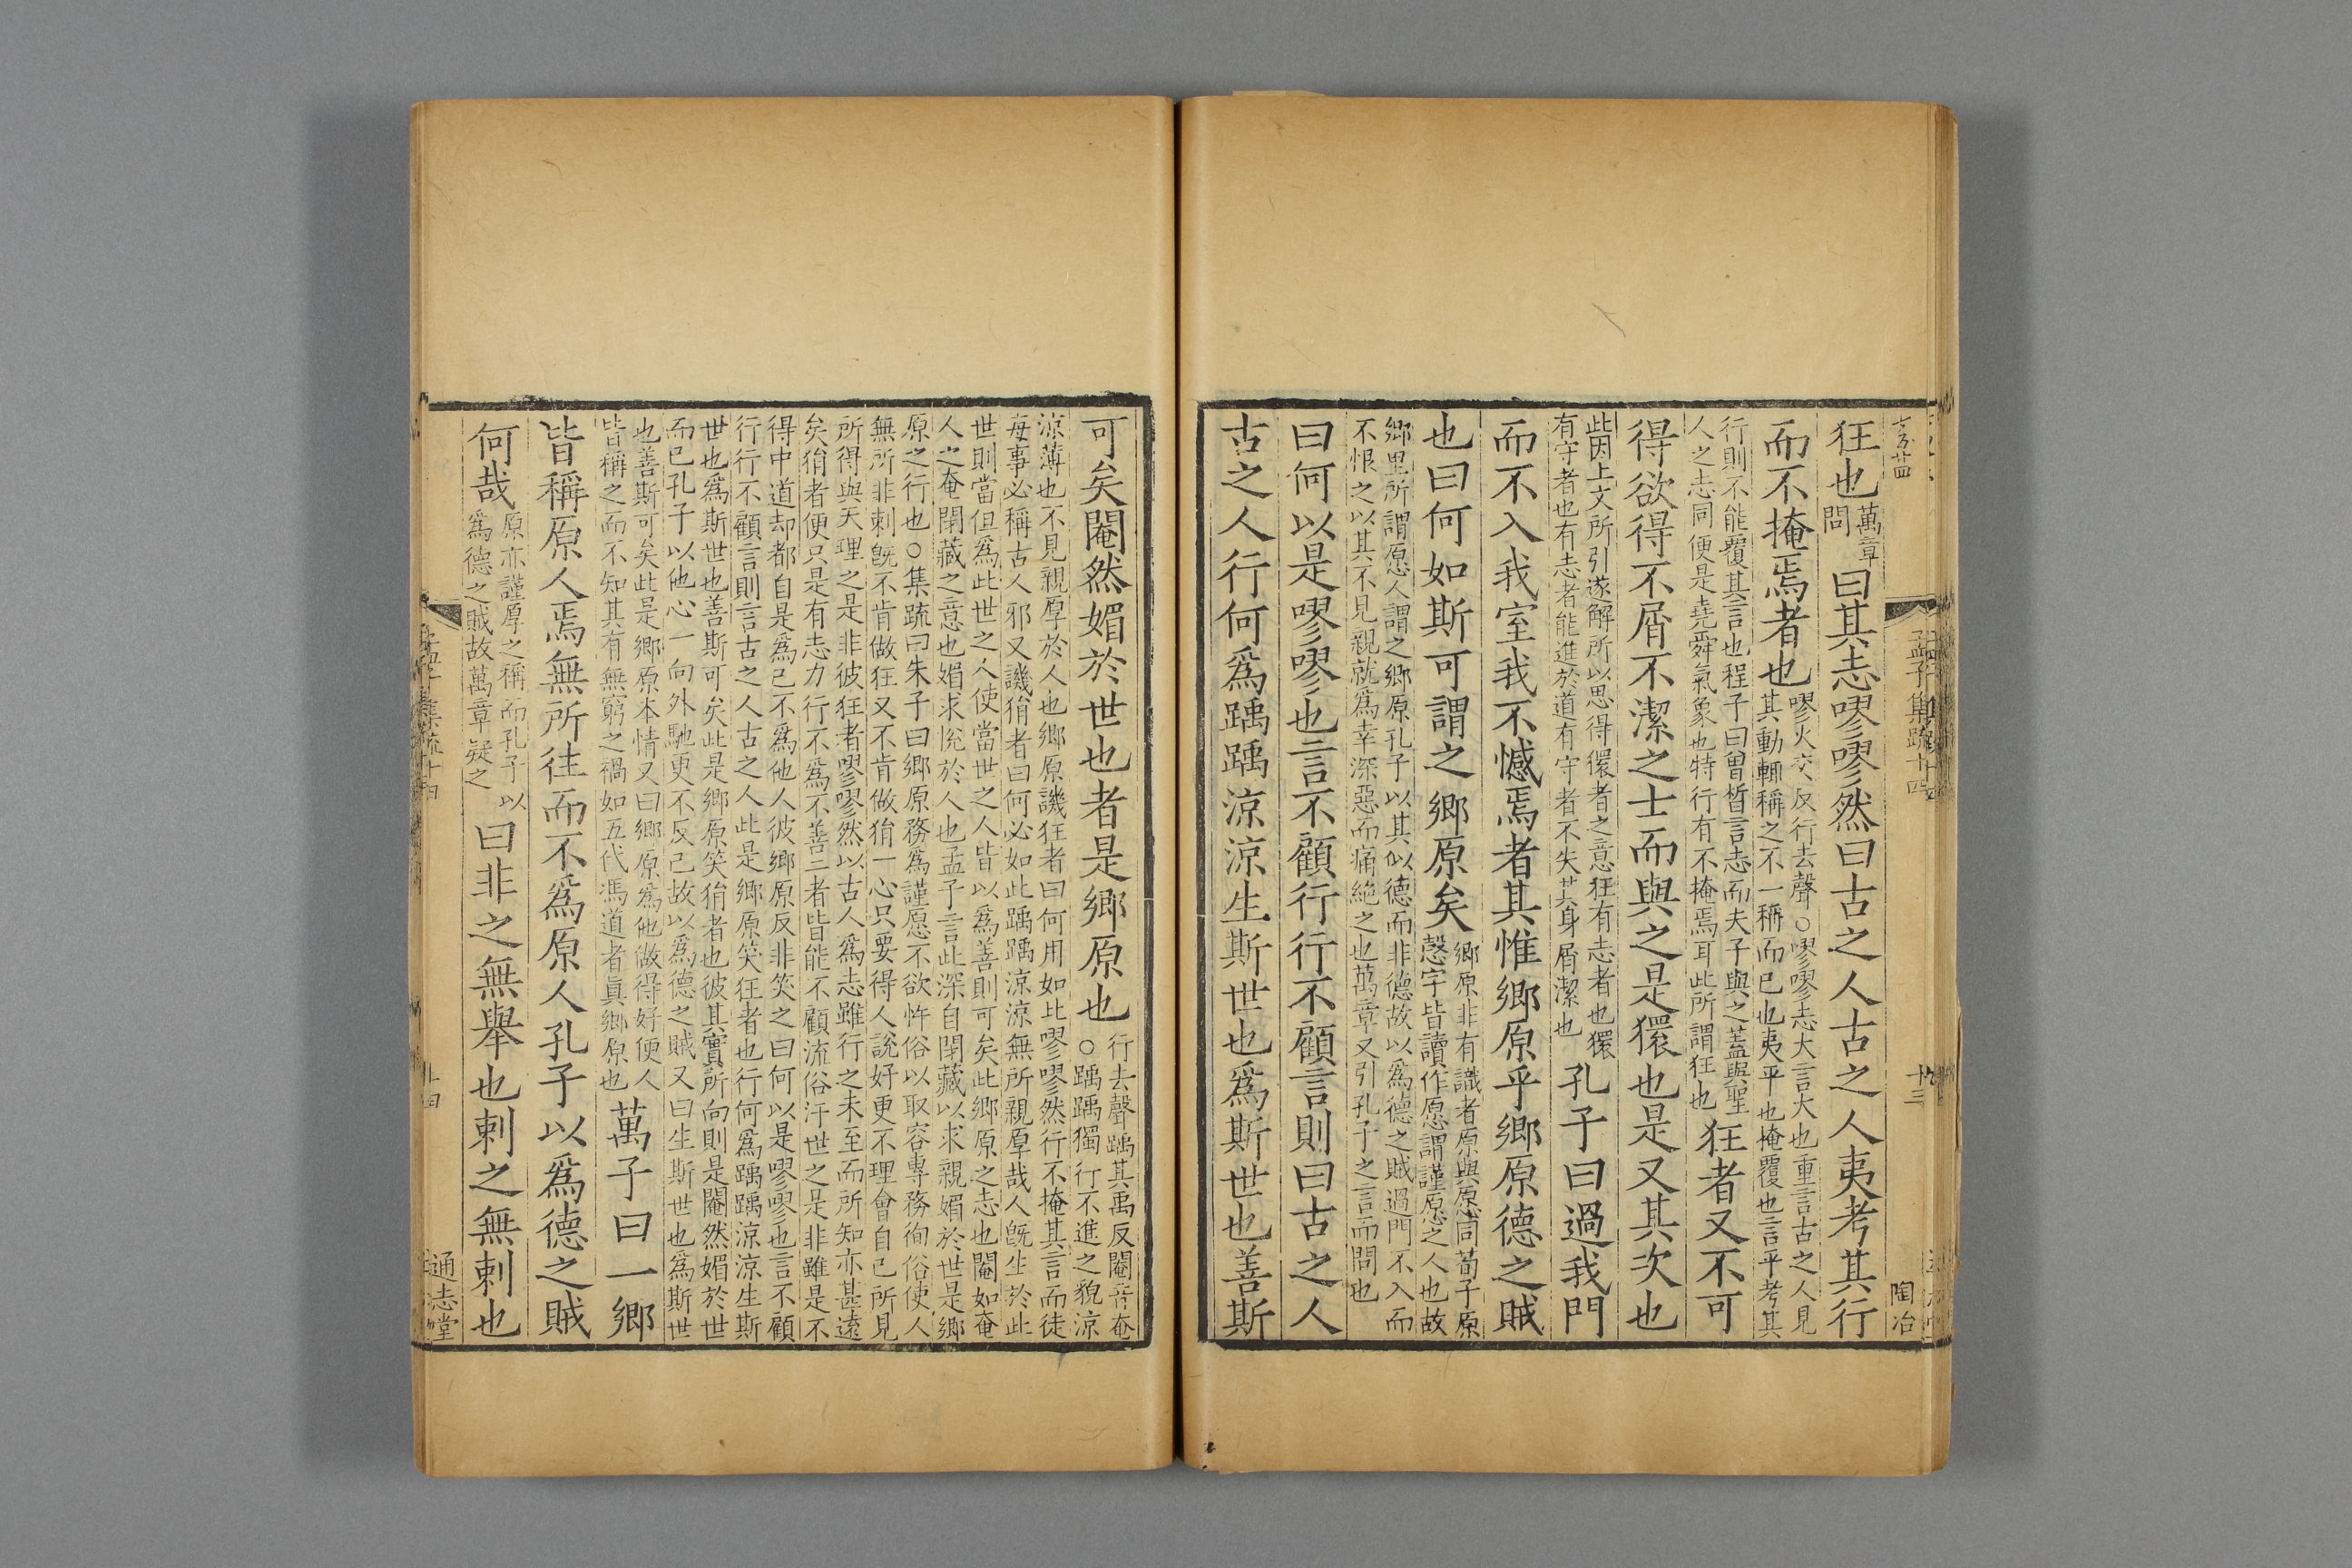 狂也萬章問曰其志嘐嘐然曰古之人古之人夷考其行
而不掩焉者也嘐火交反行去聲○嘐嘐志大言大也重言古之人見其動輒稱之不一稱而已也夷平也掩覆也言平考其
行則不能覆其言也程子曰曾晳言志而夫子與之蓋與聖人之志同便是堯舜氣象也特行有不掩焉耳此所謂狂也狂者又不可
得欲得不屑不潔之士而與之是獧也是又其次也
此因上文所引遂解所以思得獧者之意狂有志者也獧有守者也有志者能進於道有守者不失其身屑潔也孔子曰過我門
而不入我室我不憾焉者其惟鄉原乎鄉原德之賊
也曰何如斯可謂之鄉原矣鄉原非有識者原與愿同荀子原慤字皆讀作愿謂謹愿之人也故
鄉里所謂愿人謂之鄉原孔子以其似德而非德故以爲德之賊過門不入而不恨之以其不見親就爲幸深惡而痛絕之也萬章又引孔子之言而問也
曰何以是嘐嘐也言不顧行行不顧言則曰古之人
古之人行何爲踽踽涼涼生斯世也爲斯世也善斯
可矣閹然媚於世也者是鄉原也行去聲踽其禹反閹音奄○踽踽獨行不進之貌涼
涼薄也不見親厚於人也鄉原譏狂者曰何用如此嘐嘐然行不掩其言而徒每事必稱古人邪又譏狷者曰何必如此踽踽涼涼無所親厚哉人旣生於此
世則當但爲此世之人使當世之人皆以爲善則可矣此鄉原之志也閹如奄人之奄閉藏之意也媚求悅於人也孟子言此深自閉藏以求親媚於世是鄉
原之行也○集疏曰朱子曰鄉原務爲謹愿不欲忤俗以取容專務徇俗使人無所非刺旣不肯做狂又不肯做狷一心只要得人說好更不理會自己所見
所得與天理之是非彼狂者嘐嘐然以古人爲志雖行之未至而所知亦甚遠矣狷者便只是有志力行不爲不善二者皆能不顧流俗汙世之是非雖是不
得中道却都自是爲己不爲他人彼鄉原反非笑之曰何以是嘐嘐也言不顧行行不顧言則言古之人古之人此是鄉原笑狂者也行何爲踽踽涼涼生斯
世也爲斯世也善斯可矣此是鄉原笑狷者也彼其實所向則是閹然媚於世而已孔子以他心一向外馳更不反己故以爲德之賊又曰生斯世也爲斯世
也善斯可矣此是鄉原本情又曰鄉原爲他做得好便人皆稱之而不知其有無窮之禍如五代馮道者眞鄉原也萬子曰一鄉
皆稱原人焉無所往而不爲原人孔子以爲德之賊
何哉原亦謹厚之稱而孔子以爲德之賊故萬章疑之曰非之無舉也刺之無刺也
孟子集疏十四
十三
陶冶
通志堂